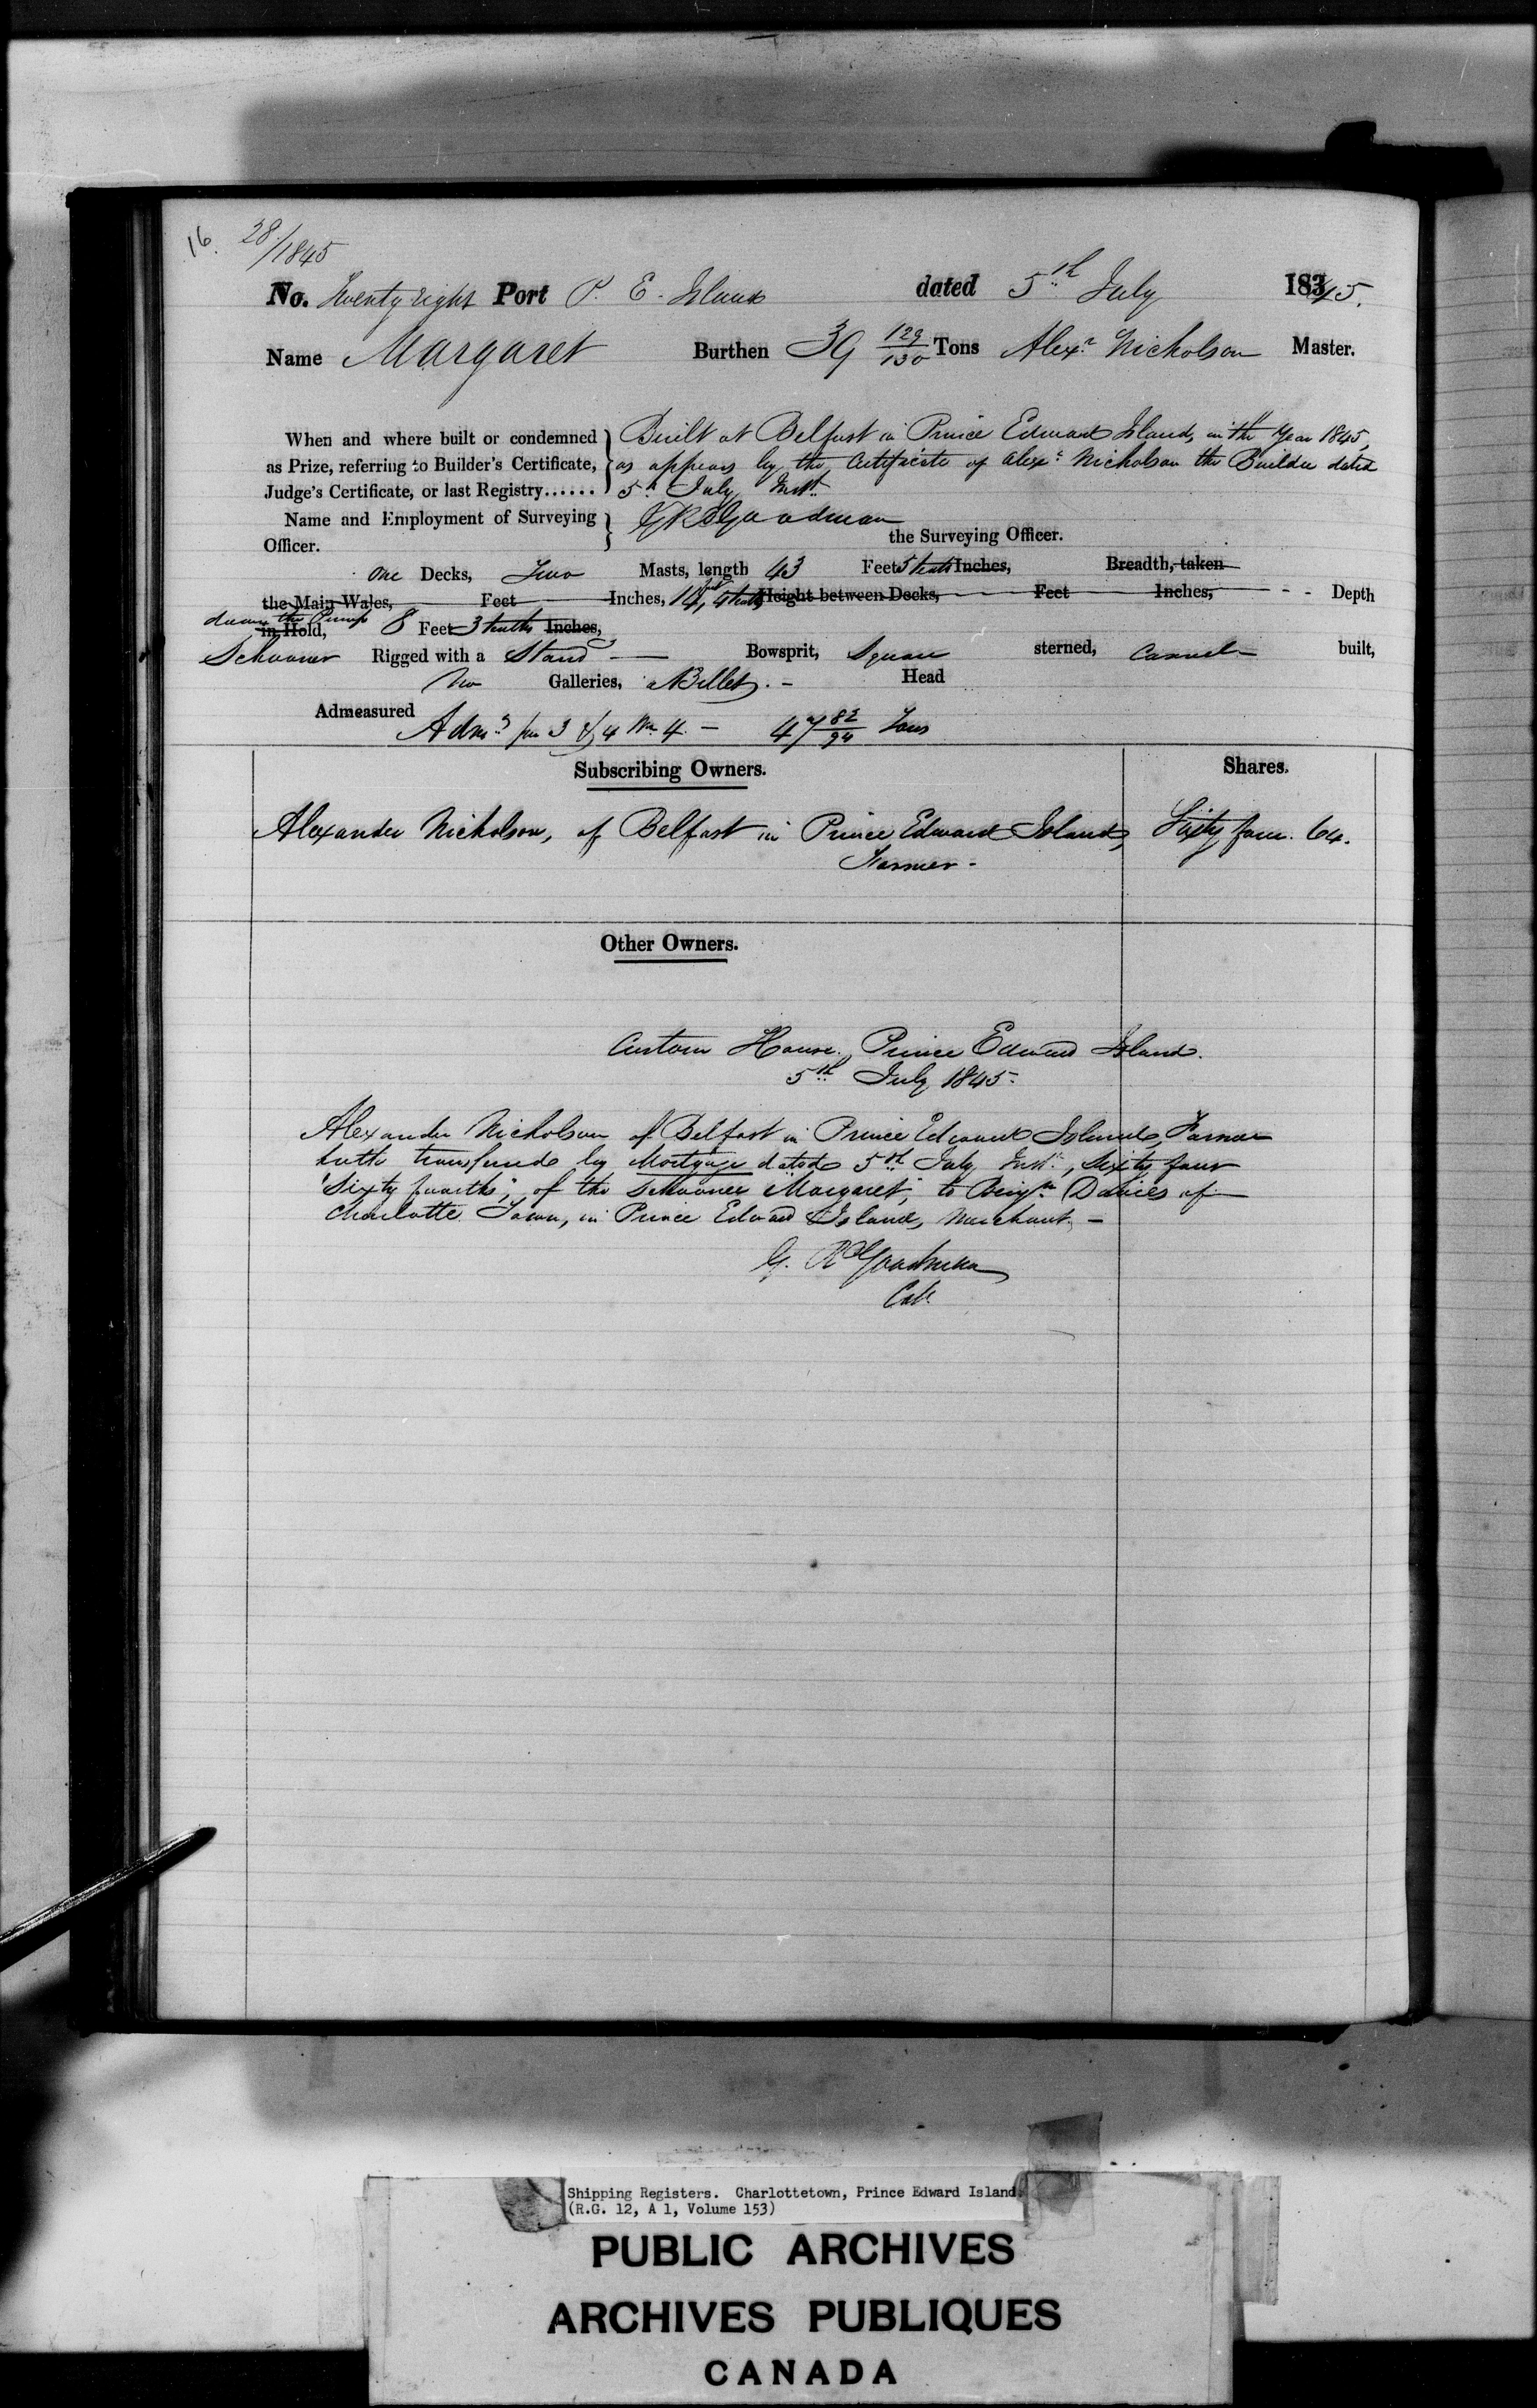 16. 28/1845
No. Twenty eight Port P. E. Island dated 5th July 1845.
Name Margaret Burthen 39 129/130 Tons Alexr Nicholson Master.
When and where built or condemned } Built at Belfast in Prince Edward Island, in the Year 1845,
as Prize, referring to Builder's Certificate, as appears by the Certificate of Alexr Nicholson the Builder dated
Judge's Certificate, or last Registry...... 5th July Inst.
Name and Employment of Surveying } G R Goodman
Officer. the Surveying Officer.
One Decks, Two Masts, length 43 Feet 5 tenths Inches, Breadth, taken
the Main Wales, Feet Inches, 14 feet, 4 tenths Height between Decks, Feet Inches, - - Depth
down the Pump
in Hold, 8 Feet 3 tenths Inches,
Schooner Rigged with a Stand Bowsprit, Square sterned, Carvel built,
No Galleries, a Billet Head
Admeasured
Adm. per 3 & 4 Wm 4. - 47 82/94 Tons
Subscribing Owners. Shares.
Alexander Nicholson, of Belfast in Prince Edward Island, Sixty four. 64.
Farmer -
Other Owners.
Custom House, Prince Edward Island.
5th July 1845.
Alexander Nicholson of Belfast in Prince Edward Island, Farmer
hath transferred by Mortgage dated 5th July Inst., Sixty four
"Sixty fourths", of the Schooner "Margaret", to Benjn Davies of
Charlotte Town, in Prince Edward Island, Merchant. -
G. R Goodman
Coll.
Shipping Registers. Charlottetown, Prince Edward Island.
(R.G. 12, A 1, Volume 153)
PUBLIC ARCHIVES
ARCHIVES PUBLIQUES
CANADA